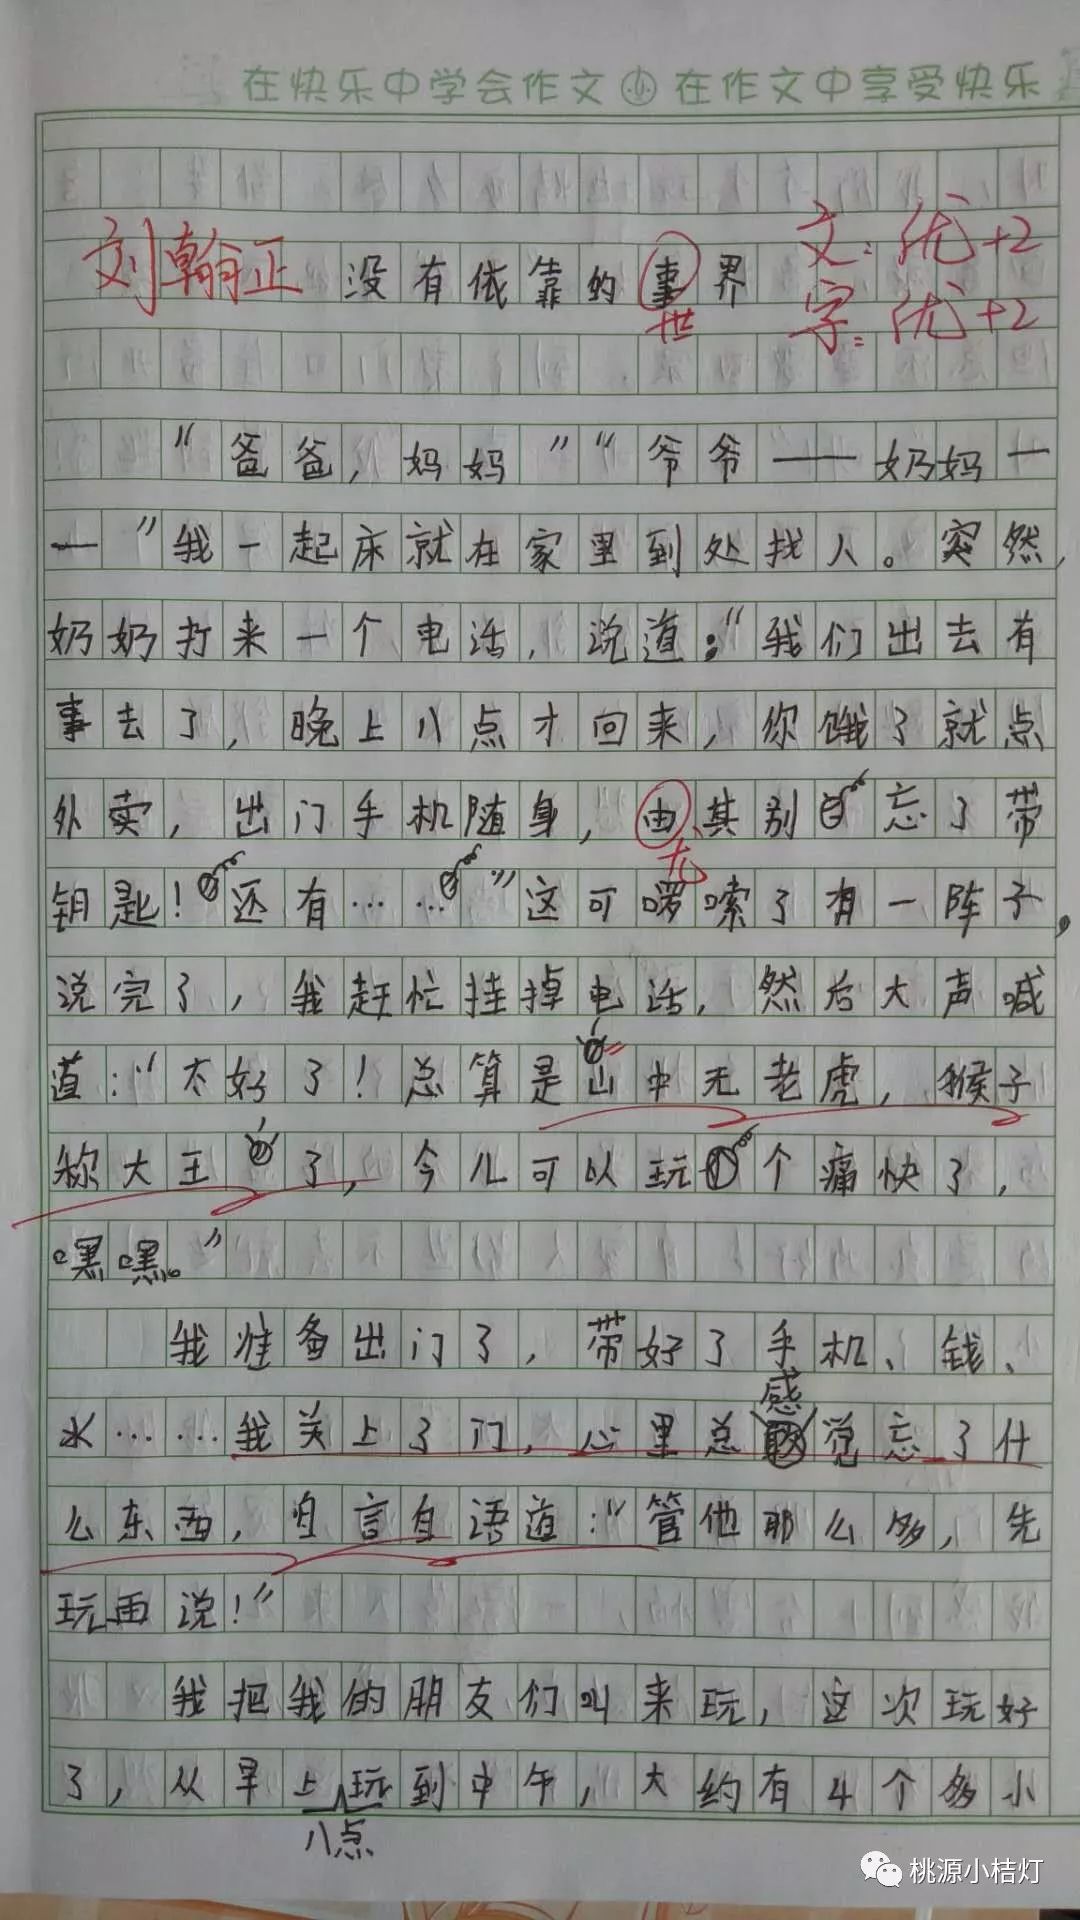 在快乐中学会作文 小 在作文中享受快乐
刘翰正 没有依靠的事界 文：优+2
世 字：优+2
“爸爸，妈妈”“爷爷——奶妈—
—”我一起床就在家里到处找人。突然，
奶奶打来一个电话，说道：“我们出去有
事去了，晚上八点才回来，你饿了就点
外卖，出门手机随身，由其别忘了带
尤
钥匙！还有……”这可啰嗦了有一阵子，
说完了，我赶忙挂掉电话，然后大声喊
道：“太好了！总算是山中无老虎，猴子
称大王了，今儿可以玩个痛快了，
嘿嘿。”
我准备出门了，带好了手机、钱、
水……我关上了门，心里总感觉忘了什
么东西，自言自语道：“管他那么多，先
玩再说！”
我把我的朋友们叫来玩，这次玩好
了，从早上玩到中午，大约有4个多小
八点
桃源小桔灯